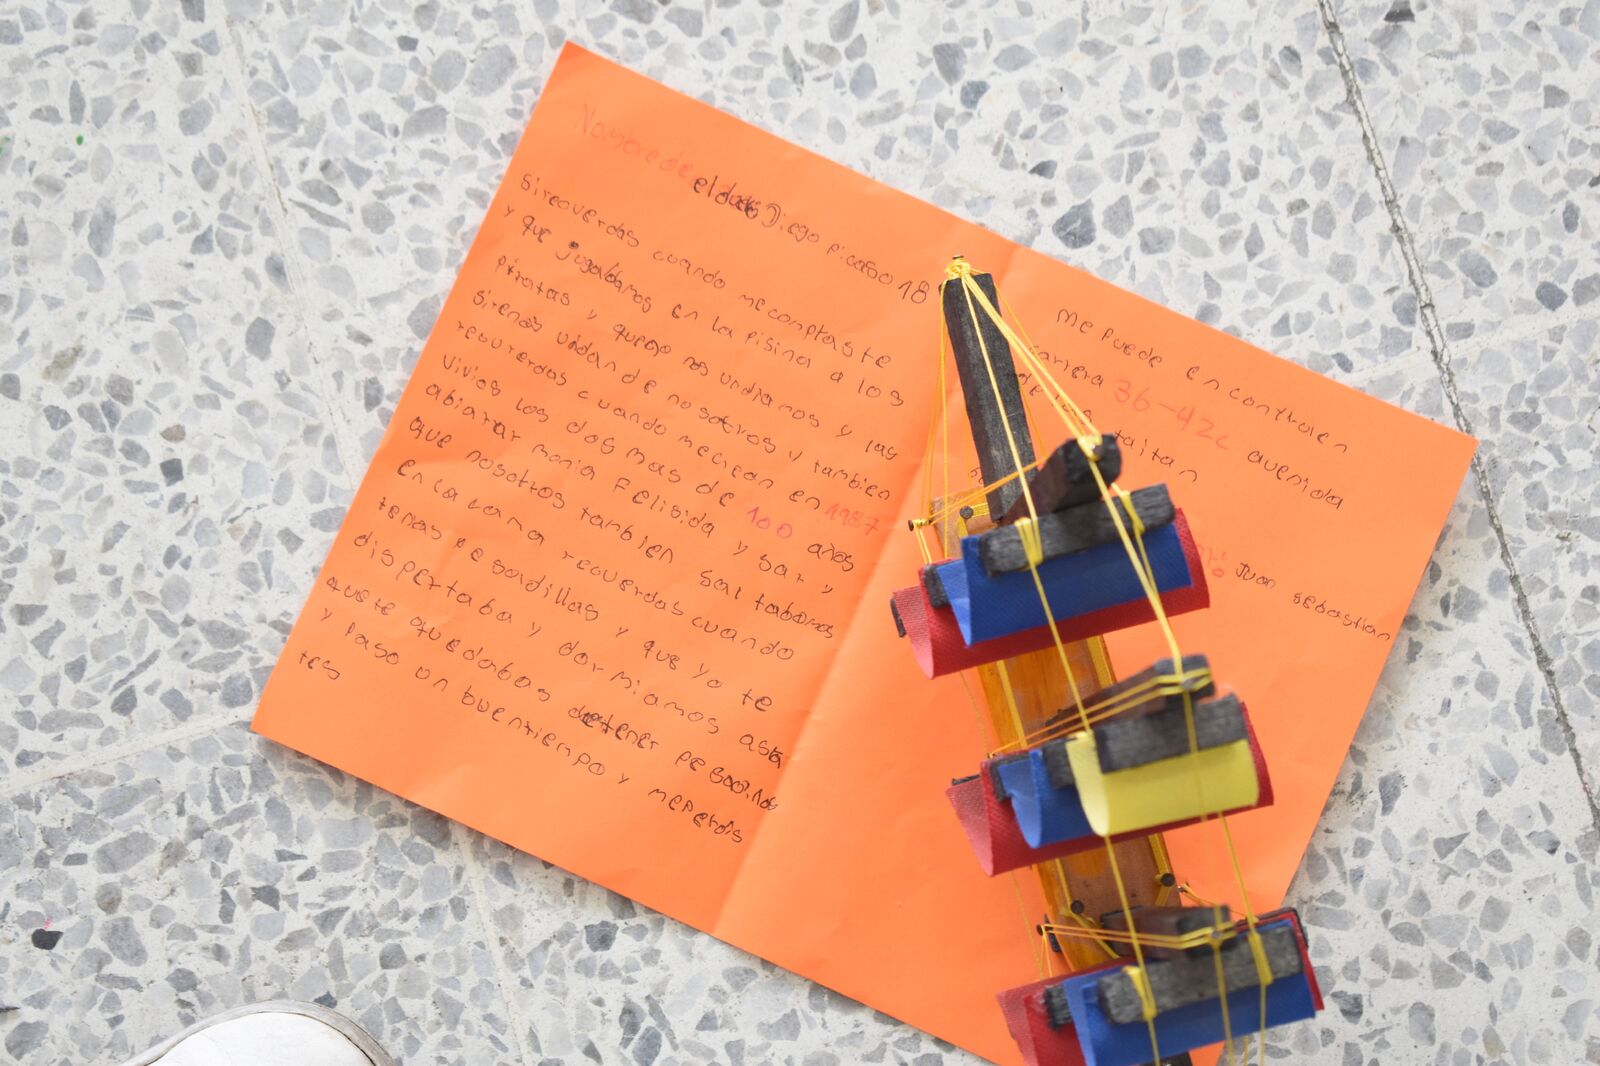 Nombre de el dueño Diego picaso 18
Sirecuerdas cuando mecompraste
y que jugabamos en la pisina a los
piratas y quego nos undiamos y las
sirenas uidan de nosotros y tambien
recurerdas cuando mecrean en 1987
vivios los dos mas de 100 años
abiarar monia Felisida y sar y
que nosotros tambien sal tabamos
en la cama recuerdas cuando
tenas pesadillas y que yo te
dispertaba y dormiamos asta
que te quedabas detener pesadillas
y paso un buentienpo y meperdis
tes
me puede encontralen
carrera 36-42c avenida
de las taitan
Juan sebastian